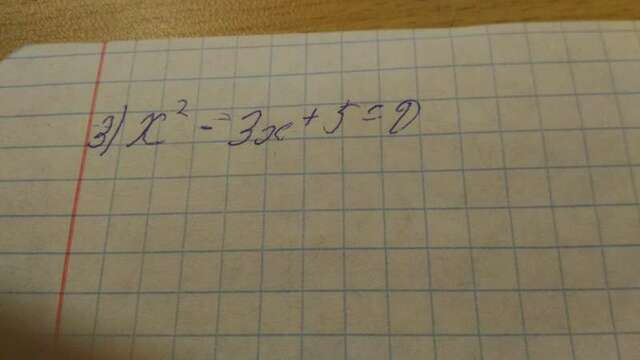 3) x² - 3x + 5 = 0